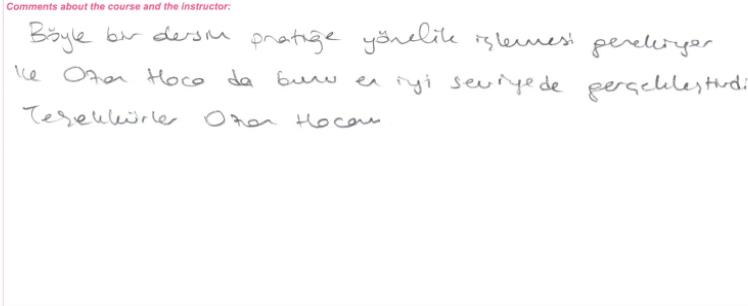 Comments about the course and the instructor:
Böyle bir dersin pratiğe yönelik işlemesi gerekiyor
ki Ozan Hoca da bunu en iyi seviyede gerçekleştirdi
Teşekkürler Ozan Hocam